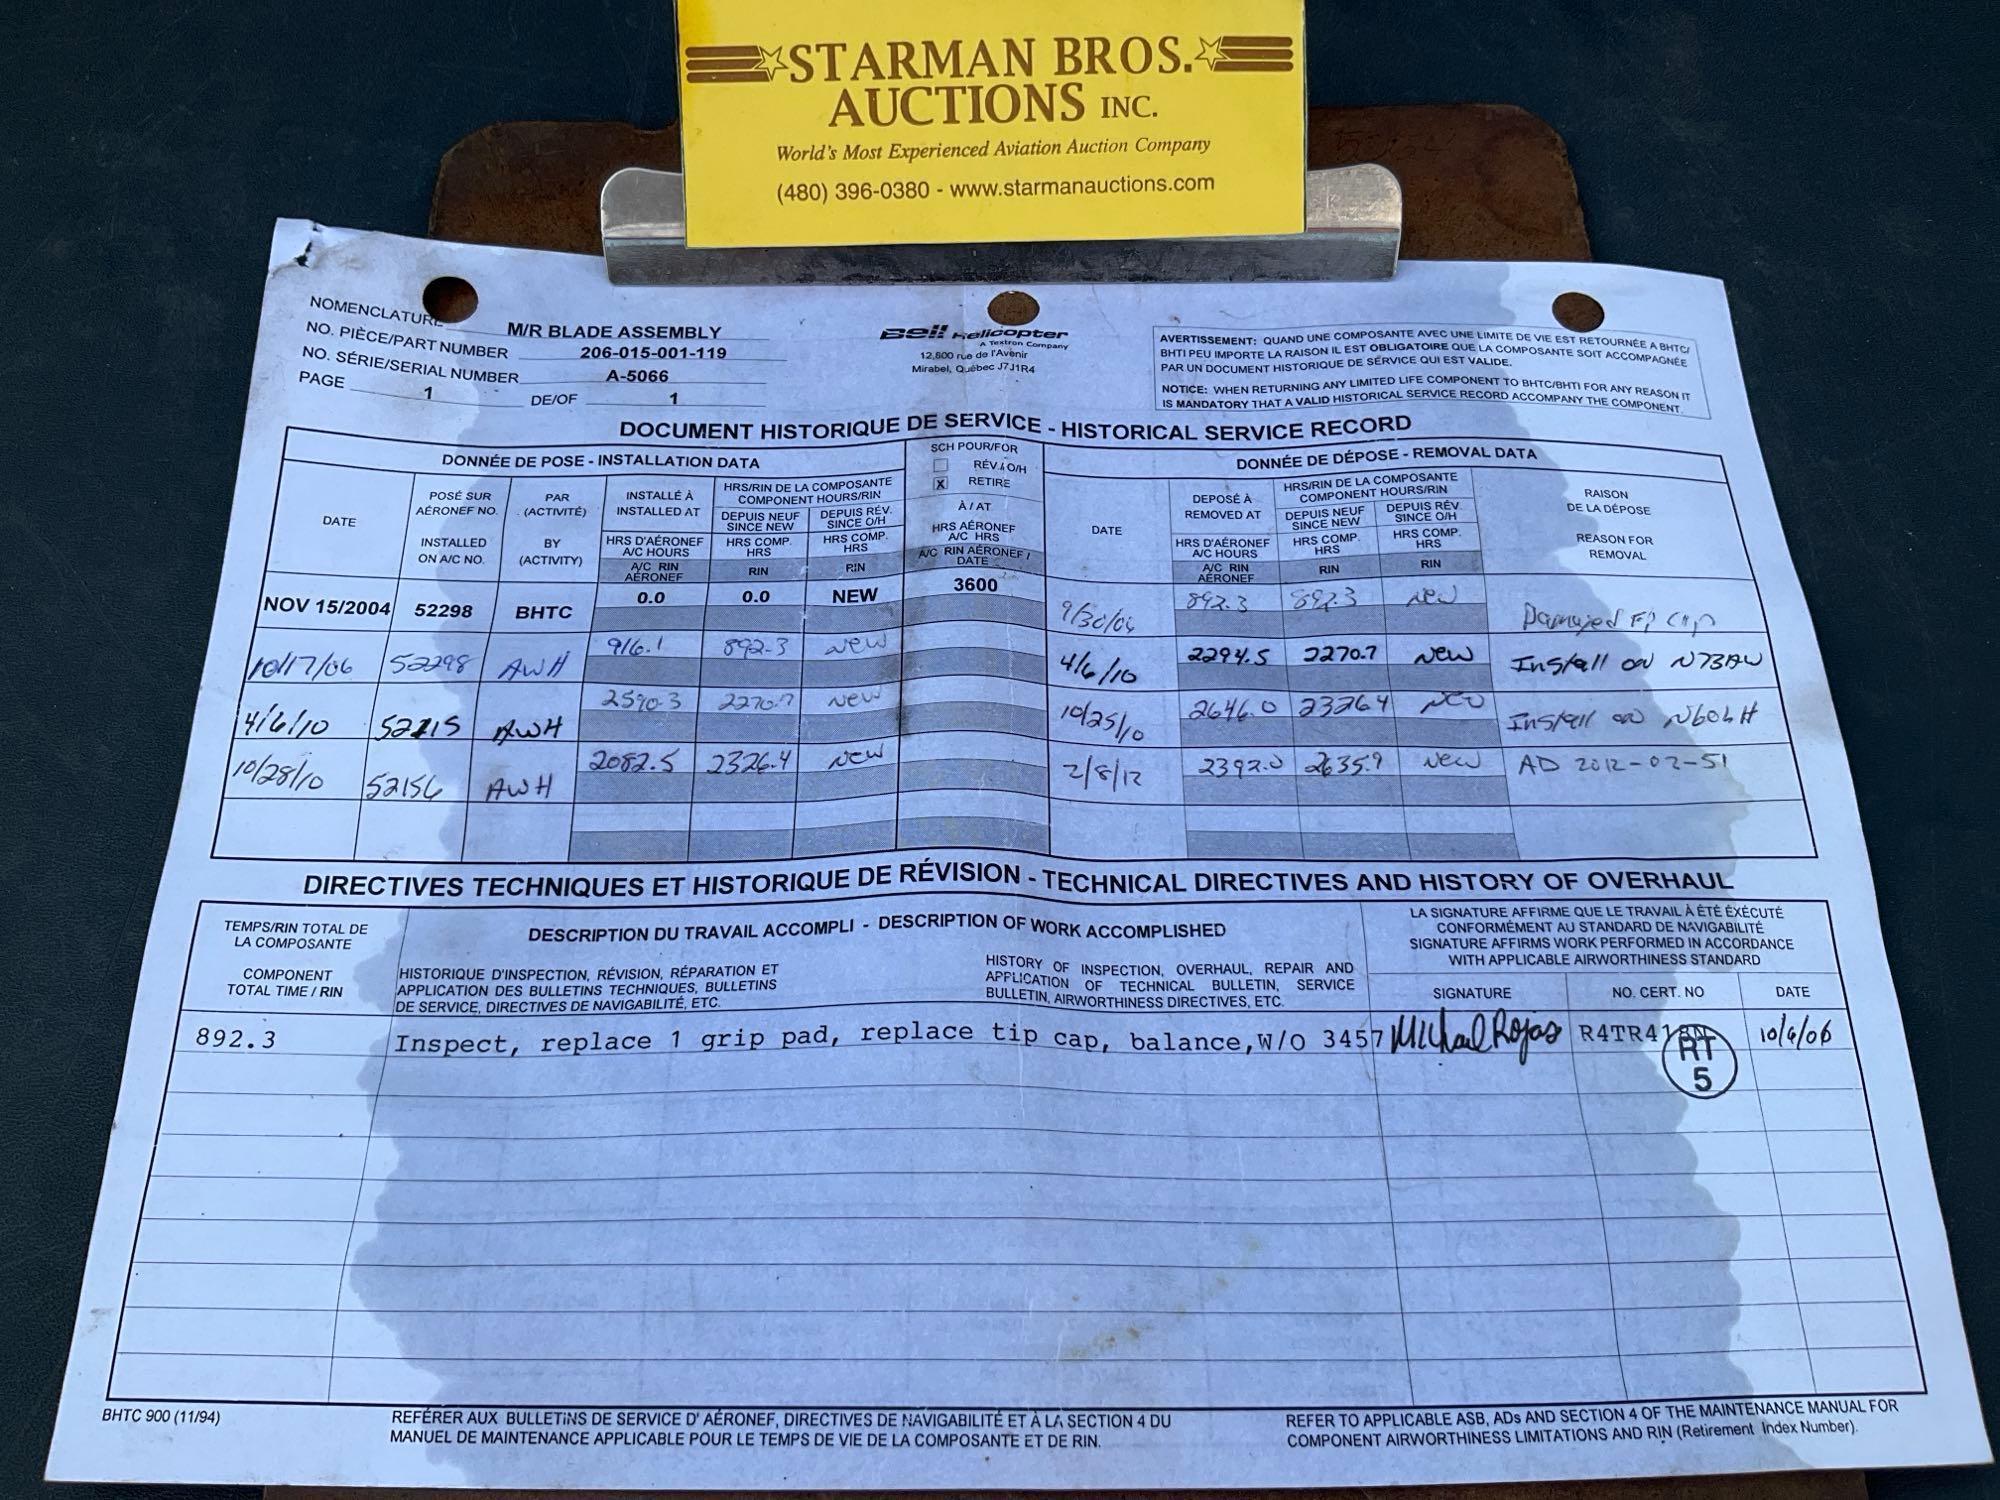 STARMAN BROS.
AUCTIONS INC.
World's Most Experienced Aviation Auction Company
(480) 396-0380 - www.starmanauctions.com
NOMENCLATURE M/R BLADE ASSEMBLY
NO. PIÈCE/PART NUMBER 206-015-001-119
NO. SÉRIE/SERIAL NUMBER A-5066
PAGE 1 DE/OF 1
Bell Helicopter
A Textron Company
12,800 rue de l'Avenir
Mirabel, Québec J7J1R4
AVERTISSEMENT: QUAND UNE COMPOSANTE AVEC UNE LIMITE DE VIE EST RETOURNÉE A BHTC/
BHTI PEU IMPORTE LA RAISON IL EST OBLIGATOIRE QUE LA COMPOSANTE SOIT ACCOMPAGNÉE
PAR UN DOCUMENT HISTORIQUE DE SERVICE QUI EST VALIDE.
NOTICE: WHEN RETURNING ANY LIMITED LIFE COMPONENT TO BHTC/BHTI FOR ANY REASON IT
IS MANDATORY THAT A VALID HISTORICAL SERVICE RECORD ACCOMPANY THE COMPONENT.
DOCUMENT HISTORIQUE DE SERVICE - HISTORICAL SERVICE RECORD
DONNÉE DE POSE - INSTALLATION DATA
DATE
POSÉ SUR
AÉRONEF NO.
INSTALLED
ON A/C NO.
PAR
(ACTIVITÉ)
BY
(ACTIVITY)
INSTALLÉ À
INSTALLED AT
HRS D'AÉRONEF
A/C HOURS
A/C RIN
AÉRONEF
HRS/RIN DE LA COMPOSANTE
COMPONENT HOURS/RIN
DEPUIS NEUF
SINCE NEW
HRS COMP.
HRS
RIN
DEPUIS RÉV.
SINCE O/H
HRS COMP.
HRS
RIN
SCH POUR/FOR
RÉV./O/H
X RETIRE
À / AT
HRS AÉRONEF
A/C HRS
A/C RIN AÉRONEF /
DATE
DONNÉE DE DÉPOSE - REMOVAL DATA
DATE
DEPOSÉ À
REMOVED AT
HRS D'AÉRONEF
A/C HOURS
A/C RIN
AÉRONEF
HRS/RIN DE LA COMPOSANTE
COMPONENT HOURS/RIN
DEPUIS NEUF
SINCE NEW
HRS COMP.
HRS
RIN
DEPUIS RÉV.
SINCE O/H
HRS COMP.
HRS
RIN
RAISON
DE LA DÉPOSE
REASON FOR
REMOVAL
NOV 15/2004 52298 BHTC 0.0 0.0 NEW 3600 9/30/06 892.3 892.3 New Damaged Cap
10/17/06 52298 AWH 916.1 892.3 New 4/6/10 2294.5 2270.7 New Install on N73AW
4/6/10 52115 AWH 2590.3 2270.7 New 10/25/10 2646.0 2326.4 New Install on
10/28/10 52156 AWH 2082.5 2326.4 New 2/8/12 2392.0 2635.9 New AD 2012-02-51
DIRECTIVES TECHNIQUES ET HISTORIQUE DE RÉVISION - TECHNICAL DIRECTIVES AND HISTORY OF OVERHAUL
TEMPS/RIN TOTAL DE
LA COMPOSANTE
COMPONENT
TOTAL TIME / RIN
DESCRIPTION DU TRAVAIL ACCOMPLI - DESCRIPTION OF WORK ACCOMPLISHED
HISTORIQUE D'INSPECTION, RÉVISION, RÉPARATION ET
APPLICATION DES BULLETINS TECHNIQUES, BULLETINS
DE SERVICE, DIRECTIVES DE NAVIGABILITÉ, ETC.
HISTORY OF INSPECTION, OVERHAUL, REPAIR AND
APPLICATION OF TECHNICAL BULLETIN, SERVICE
BULLETIN, AIRWORTHINESS DIRECTIVES, ETC.
LA SIGNATURE AFFIRME QUE LE TRAVAIL À ÉTÉ ÉXÉCUTÉ
CONFORMÉMENT AU STANDARD DE NAVIGABILITÉ
SIGNATURE AFFIRMS WORK PERFORMED IN ACCORDANCE
WITH APPLICABLE AIRWORTHINESS STANDARD
SIGNATURE NO. CERT. NO DATE
892.3 Inspect, replace 1 grip pad, replace tip cap, balance, W/O 3457 Michael Rojas R4TR418N 10/6/06
RT
5
BHTC 900 (11/94)
REFÉRER AUX BULLETINS DE SERVICE D' AÉRONEF, DIRECTIVES DE NAVIGABILITÉ ET À LA SECTION 4 DU
MANUEL DE MAINTENANCE APPLICABLE POUR LE TEMPS DE VIE DE LA COMPOSANTE ET DE RIN.
REFER TO APPLICABLE ASB, ADs AND SECTION 4 OF THE MAINTENANCE MANUAL FOR
COMPONENT AIRWORTHINESS LIMITATIONS AND RIN (Retirement Index Number).